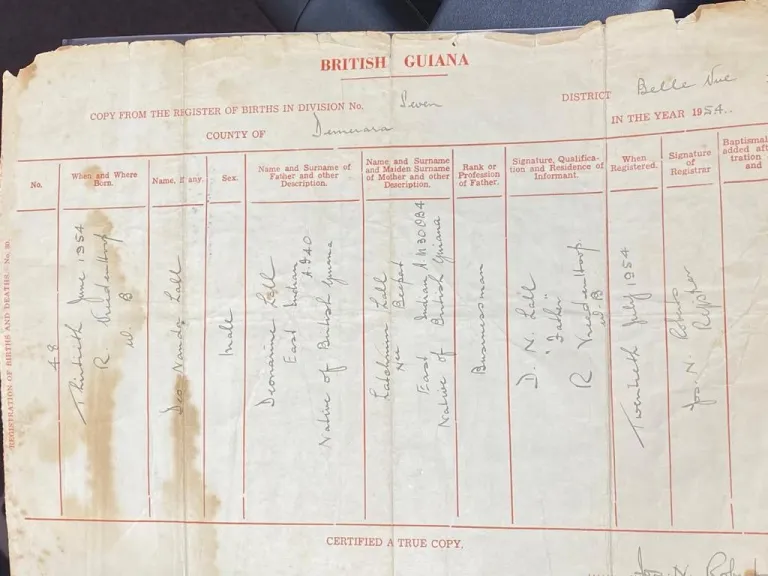 BRITISH GUIANA
COPY FROM THE REGISTER OF BIRTHS IN DIVISION No. Seven DISTRICT Belle Vue
COUNTY OF Demerara IN THE YEAR 1954.
No.
When and Where
Born.
Name, if any.
Sex.
Name and Surname of
Father and other
Description.
Name and Surname
and Maiden Surname
of Mother and other
Description.
Rank or
Profession
of Father.
Signature, Qualifica-
tion and Residence of
Informant.
When
Registered.
Signature
of
Registrar
Baptismal
added aft
tration
and
48
Thirtieth June 1954
R. Vreedenhoop
W. B
Deo Nanda Lall
Male
Deonarine Lall
East Indian
Native of British Guiana
Latchmin Lall
Nee
East Indian
Native of British Guiana
Businessman
D. N. Lall
"Father"
R Vreedenhoop
W. B
Twentieth July 1954
Jos. N. Roberts
Registrar
REGISTRATION OF BIRTHS AND DEATHS.—No. 30.
CERTIFIED A TRUE COPY.
Jos. N.